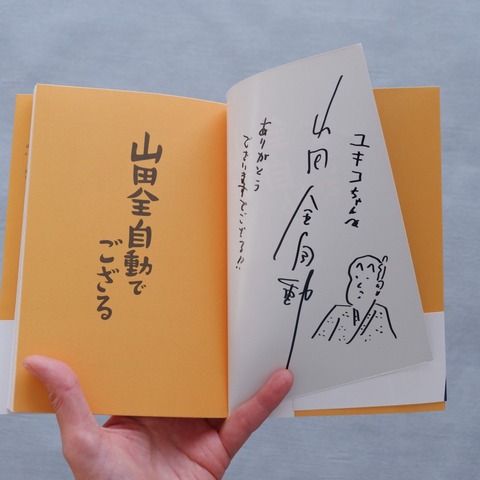 山田全自動で
ござる
ユキコちゃんへ
山田全自動
ありがとう
ございますでござる!!